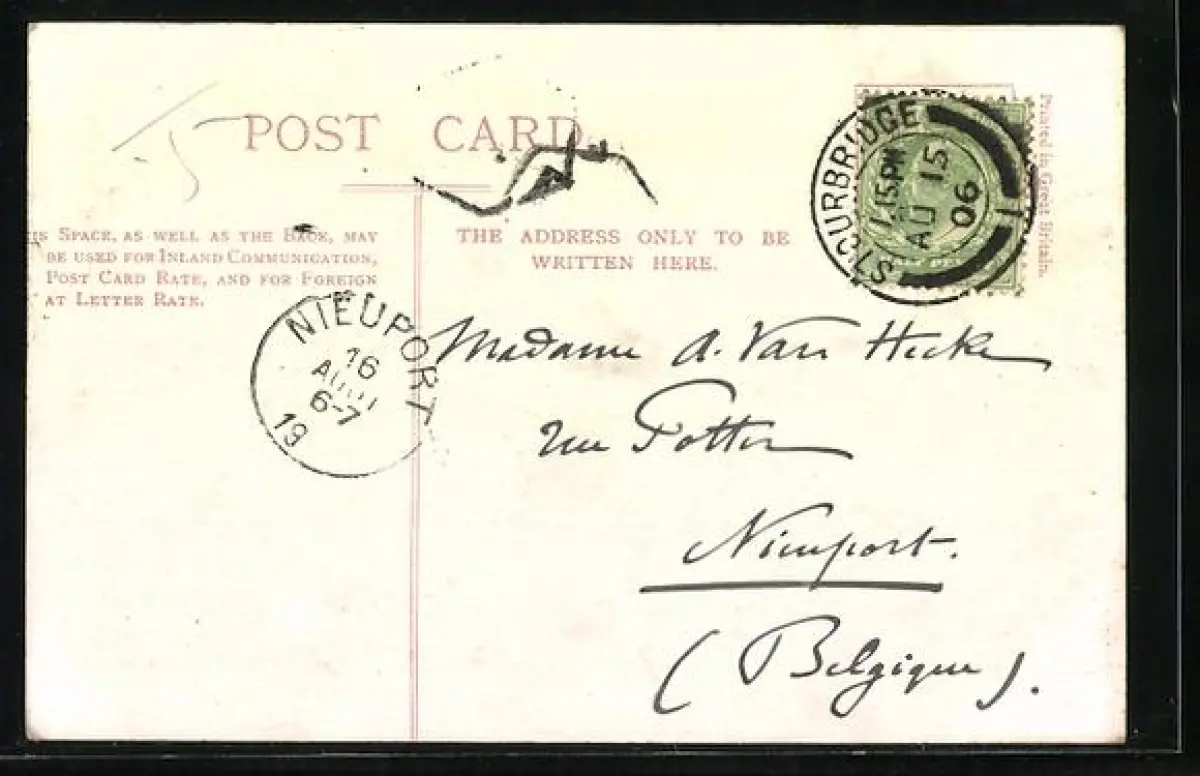 POST CARD
IS SPACE, AS WELL AS THE BACK, MAY
BE USED FOR INLAND COMMUNICATION,
POST CARD RATE, AND FOR FOREIGN
AT LETTER RATE.
THE ADDRESS ONLY TO BE
WRITTEN HERE.
Printed in Great Britain.
STOURBRIDGE
1.15PM
AU 15
06
1
NIEUPORT
16
AOUT
6-7
19
Madame A. Van Hecke
rue Potter
Nieuport.
(Belgique).